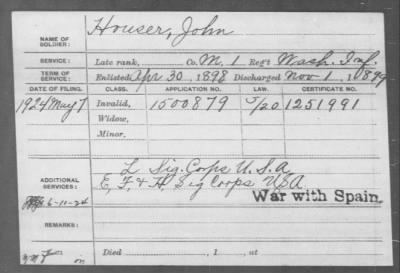 NAME OF SOLDIER: Houser, John
SERVICE: Late rank, Co. M. 1 Reg't Wash. Inf.
TERM OF SERVICE: Enlisted Apr 30, 1898 Discharged Nov 1, 1899
DATE OF FILING. CLASS. APPLICATION NO. LAW. CERTIFICATE NO.
1924 May 7 Invalid, 1500879 5/20 1251991
Widow,
Minor,
ADDITIONAL SERVICES: L Sig. Corps U.S.A
E, F, & H, Sig Corps USA
6-11-24 War with Spain.
REMARKS:
Died , 1 , at